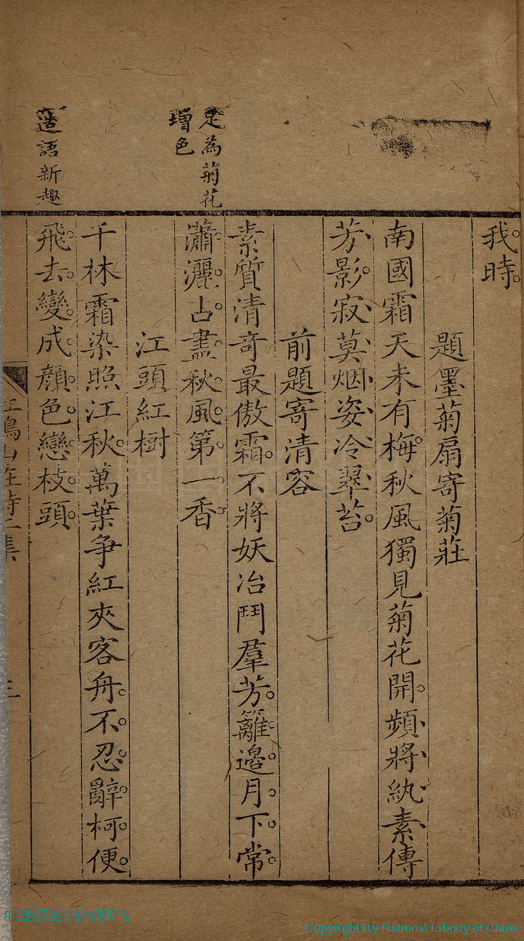 我時
題墨菊扇寄菊莊
南國霜天未有梅秋風獨見菊花開頻將紈素傳
芳影寂莫烟姿冷翠苔
前題寄清容
素質清奇最傲霜不將妖冶鬥羣芳籬邊月下常
瀟灑占盡秋風第一香
江頭紅樹
千林霜染照江秋萬葉爭紅夾客舟不忍辭柯便
飛去變成顏色戀枝頭
足為菊花
增色
造語新趣
Copyright By National Library of China